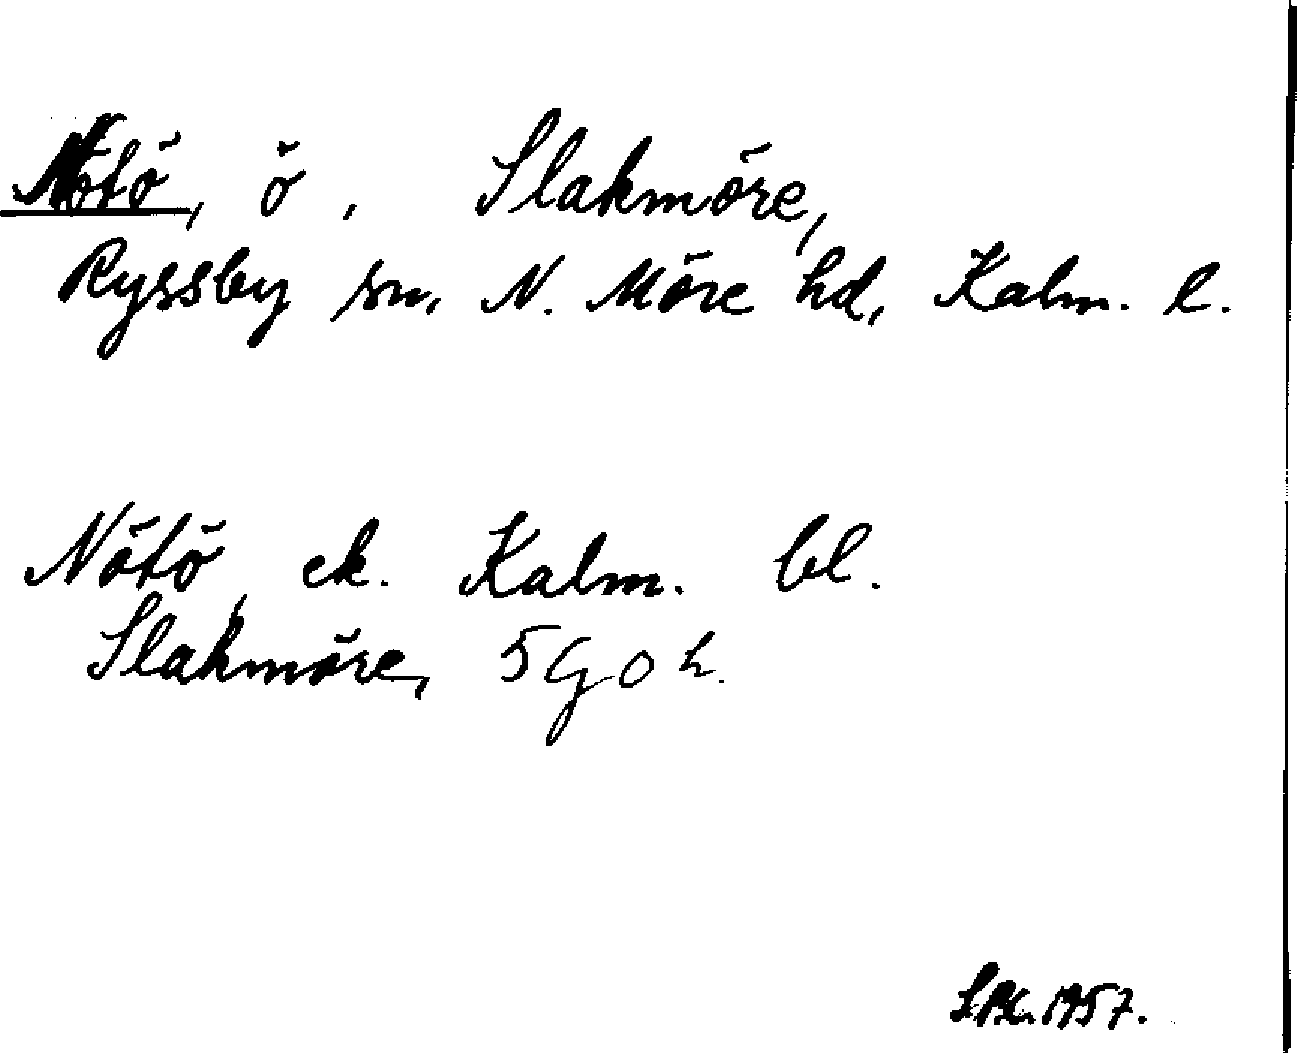 Nötö, ö, Slakmöre,
Ryssby sn, N. Möre hd, Kalm. l.
Nötö, ek. Kalm. bl.
Slakmöre, 5G0h.
1957.